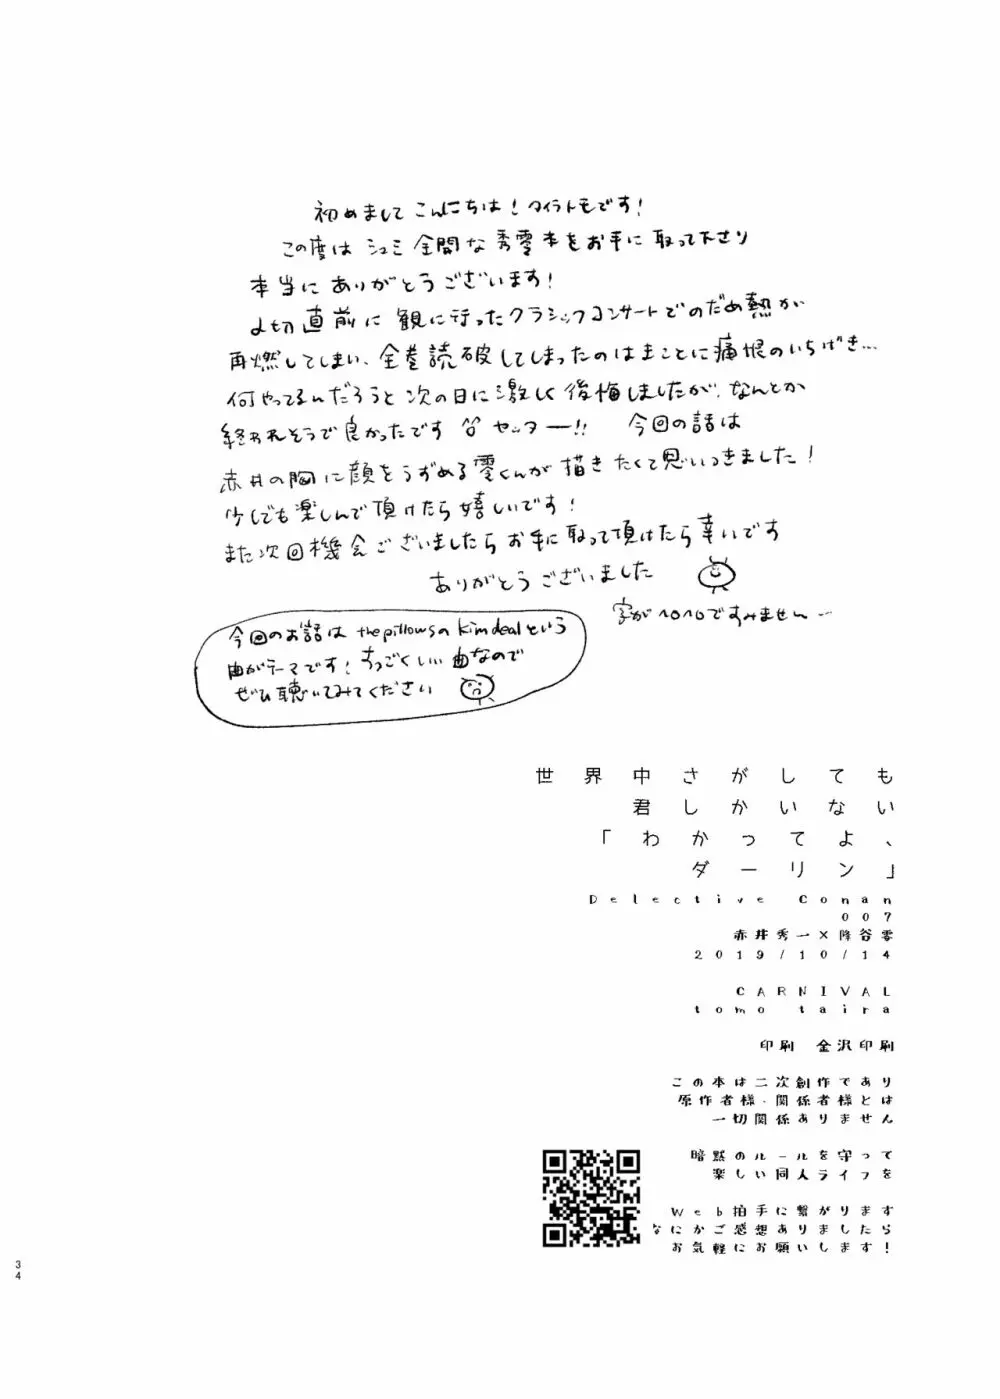 初めまして こんにちは！タイラトモです！
この度は シュミ 全開な 秀零本をお手に 取って下さり
本当に ありがとうございます！
〆切 直前に 観に行った クラシックコンサートでのだめ熱が
再燃してしまい、全巻読破してしまったのは まことに痛恨のいちげき…
何やってるんだろうと 次の日に激しく 後悔しましたが、なんとか
終われそうで 良かったです ヤッター!! 今回の話は
赤井の胸に顔をうずめる零くんが 描きたくて思いつきました！
少しでも楽しんで頂けたら嬉しいです！
また次回機会ございましたら お手に取って頂けたら幸いです
ありがとうございました
字がヘロヘロですみません…
今回のお話は the pillowsの kim dealという
曲がテーマです！すっごくいい 曲なので
ぜひ聴いてみてください
世界中さがしても
君しかいない
「わかってよ、
ダーリン」
Detective Conan
007
赤井秀一×降谷零
2019/10/14
CARNIVAL
tomo taira
印刷 金沢印刷
この本は二次創作であり
原作者様・関係者様とは
一切関係ありません
暗黙のルールを守って
楽しい同人ライフを
Web拍手に繋がります
なにかご感想ありましたら
お気軽にお願いします！
34